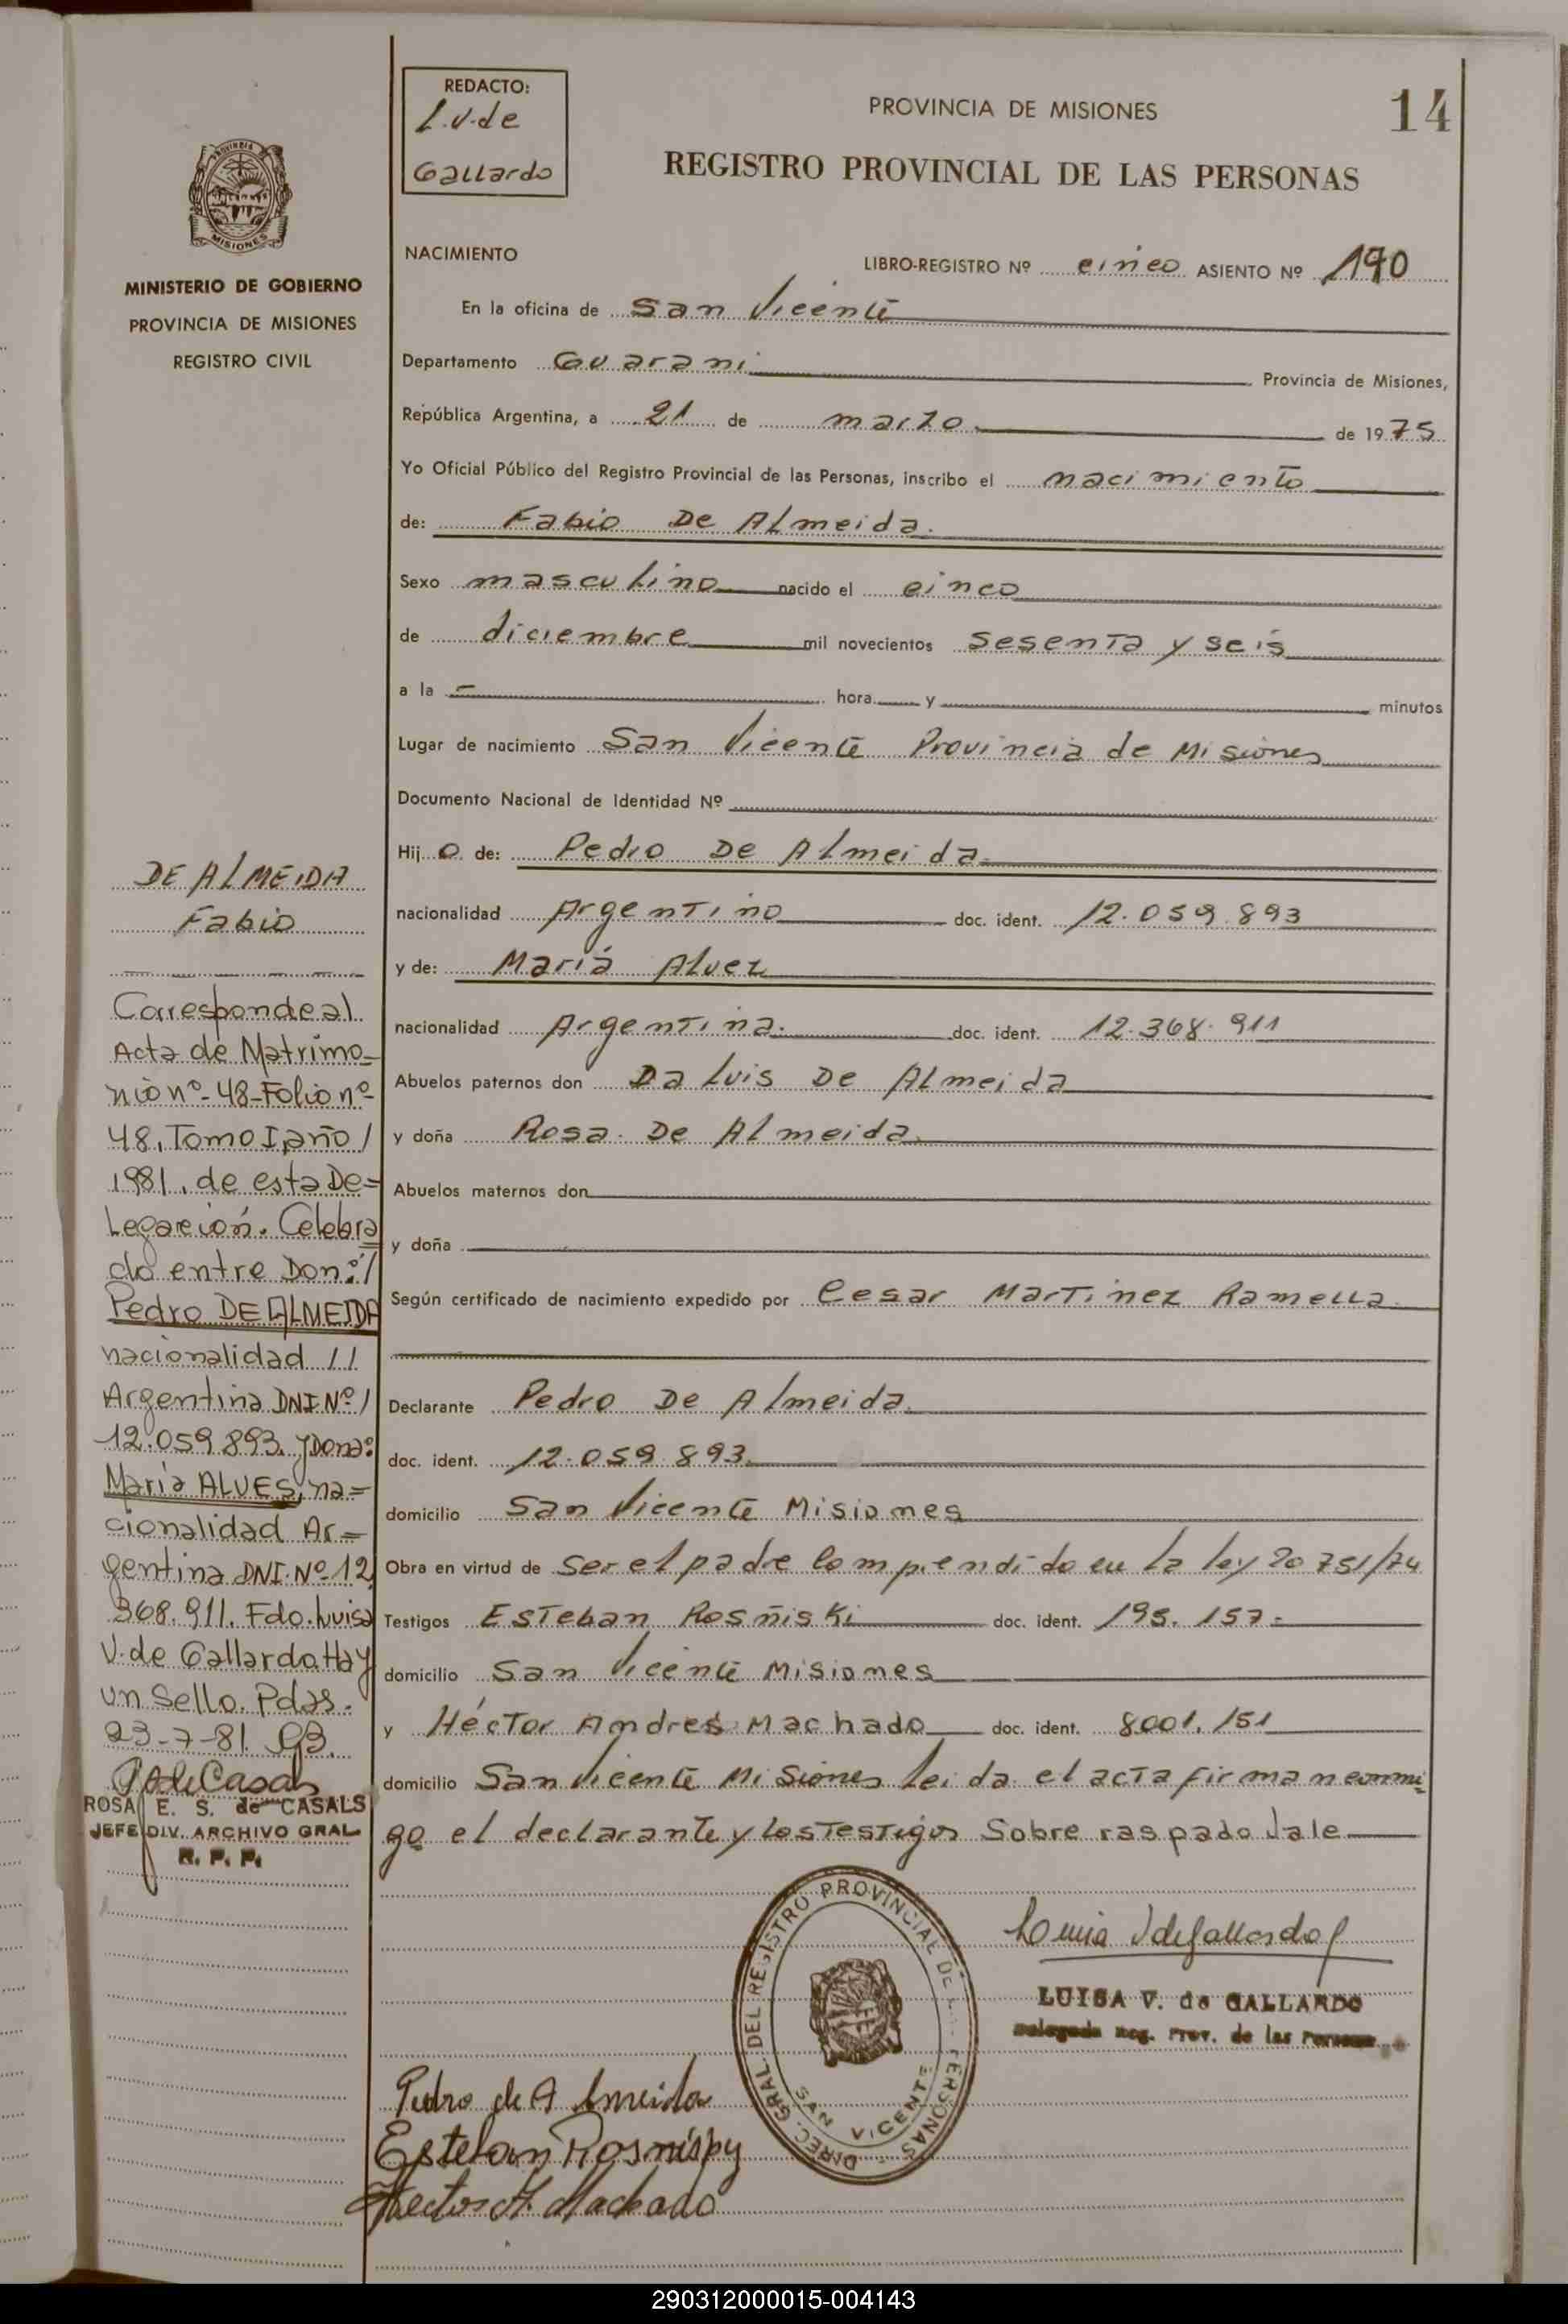 REDACTO:
L.V.de
Gallardo
PROVINCIA DE MISIONES
14
REGISTRO PROVINCIAL DE LAS PERSONAS
PROVINCIA
MISIONES
MINISTERIO DE GOBIERNO
PROVINCIA DE MISIONES
REGISTRO CIVIL
NACIMIENTO
LIBRO-REGISTRO Nº cinco ASIENTO Nº 190
En la oficina de San Vicente
Departamento Guarani Provincia de Misiones,
República Argentina, a 21 de marzo. de 1975
Yo Oficial Público del Registro Provincial de las Personas, inscribo el nacimiento
de: Fabio De Almeida.
Sexo masculino nacido el cinco
de diciembre mil novecientos sesenta y seis
a la - hora y minutos
Lugar de nacimiento San Vicente Provincia de Misiones
Documento Nacional de Identidad Nº
Hij o de: Pedro De Almeida
nacionalidad Argentino doc. ident. 12.059.893
y de: María Alvez
nacionalidad Argentina. doc. ident. 12.368.911
Abuelos paternos don Da Luis De Almeida
y doña Rosa. De Almeida.
Abuelos maternos don
y doña
Según certificado de nacimiento expedido por Cesar Martinez Ramella
Declarante Pedro De Almeida.
doc. ident. 12.059.893.
domicilio San Vicente Misiones
Obra en virtud de ser el padre Comprendido en la ley 20751/74
Testigos Esteban Rosñiski doc. ident. 195.157-
domicilio San Vicente Misiones
y Héctor Andres Machado doc. ident. 8001.151
domicilio San Vicente Misiones Leida el acta firman conmi=
go el declarante y los Testigos Sobre raspado Vale
DE ALMEIDA
Fabio
Corresponde al
Acta de Matrimo=
nio nº-48-Folio nº-
48, Tomo I, año /
1981, de esta De=
legación. Celebra
do entre Don: /
Pedro DE ALMEIDA
nacionalidad //
Argentina DNI Nº /
12.059.893. y Dona:
María ALVES, na=
cionalidad Ar=
gentina DNI. Nº-12.
368.911. Fdo. Luisa
V. de Gallardo. Hay
un Sello. Pdas.
23-7-81.
ROSA E. S. de CASALS
JEFE DIV. ARCHIVO GRAL
R. P. P.
DIREC. GRAL. DEL REGISTRO PROVINCIAL DE LAS PERSONAS
SAN VICENTE
LUISA V. de GALLARDO
Delegada Reg. Prov. de las Personas
Pedro de Almeida
Esteban Rosnispy
Hector A. Machado
290312000015-004143